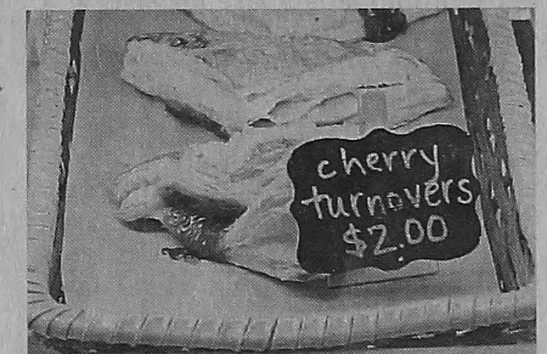 cherry
turnovers
$2.00